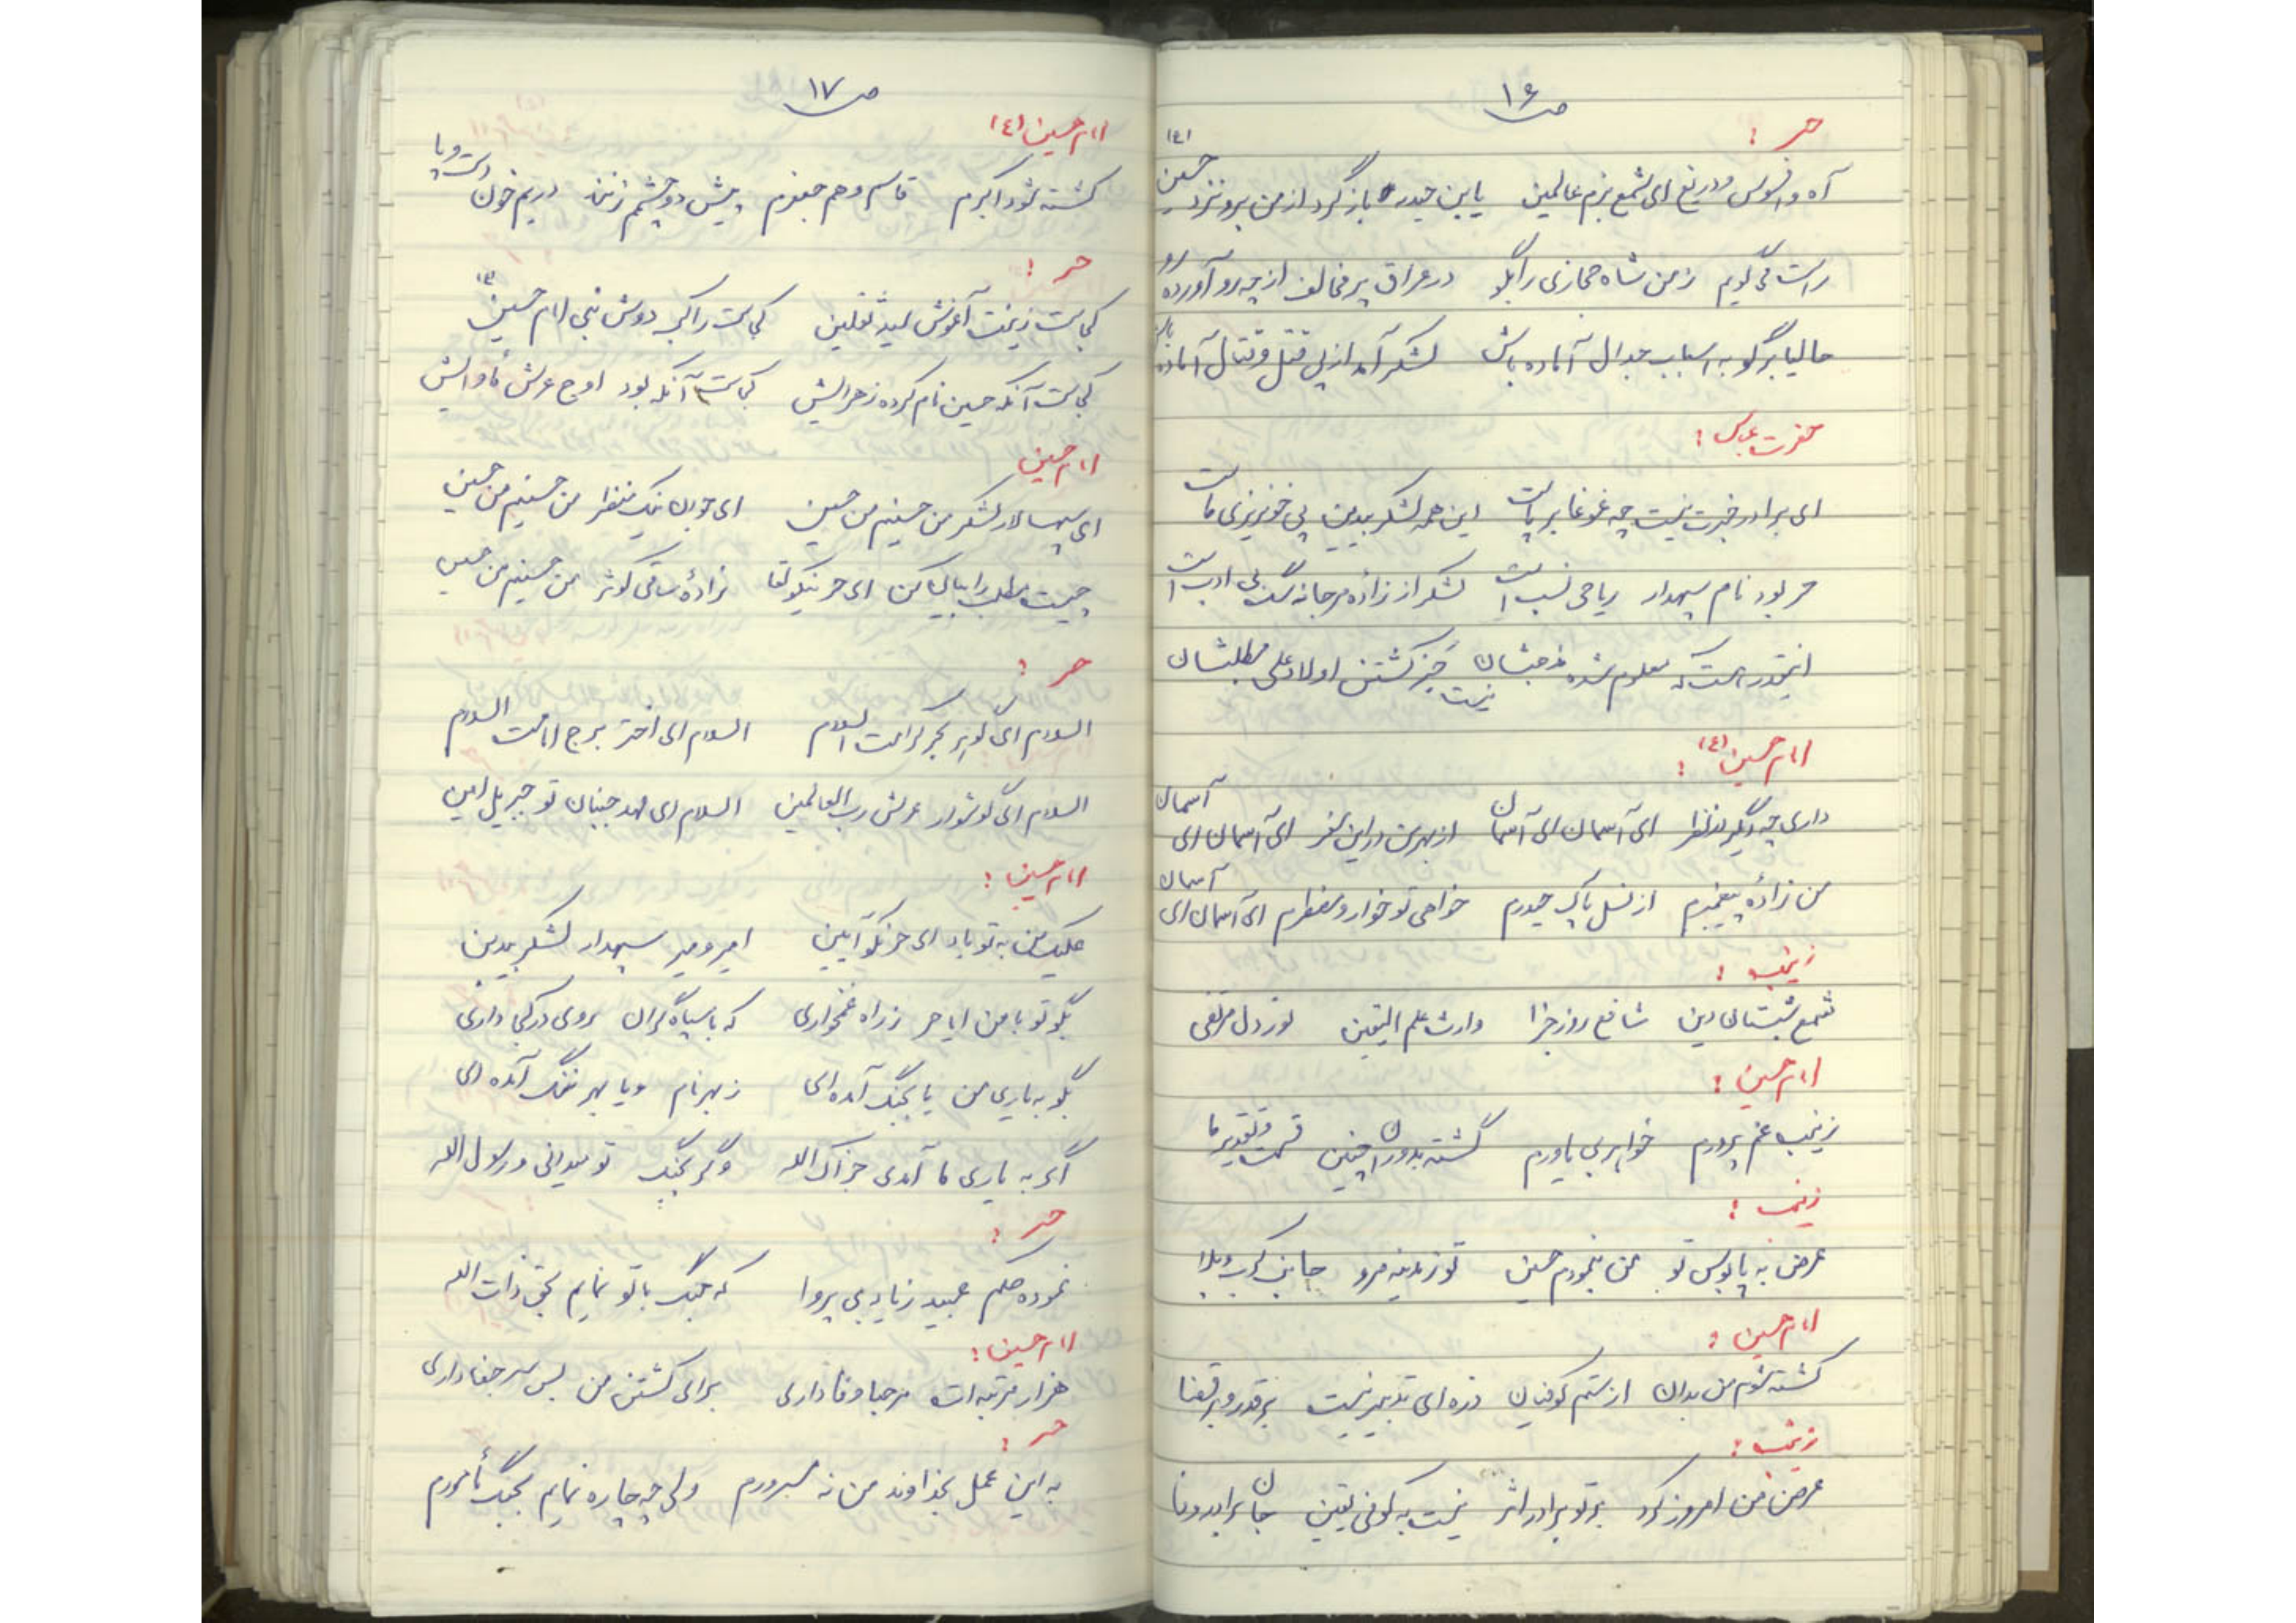 ص ۱۶
حر :
آه و افسوس و دریغ ای شمع بزم عالمین یا بن حیدر باز گرد از من برو نزد حسین (ع)
راست می گویم ز من شاه حجازی را بگو در عراق پر مخالف از چه رو آورده رو
حالیا برگو به اسباب جدال آماده باش لشکر آمد از پی قتل و قتال آماده باش
حضرت عباس :
ای برادر خبرت نیست چه غوغا برپاست این همه لشکر بیدین پی خونریزی ماست
حر بود نام سپهدار ریاحی نسب است لشکر از زادهٔ مرجانه سگ بی ادب است
اینقدر هست که معلوم شده مذهبشان نیست جز کشتن اولاد علی مطلبشان
امام حسین (ع) :
داری چه دیگر در نظر ای آسمان ای آسمان از بهر من در این سفر ای آسمان ای آسمان
من زادهٔ پیغمبرم از نسل پاک حیدرم خواهی تو خوار و مضطرم ای آسمان ای آسمان
زینب :
شمع شبستان دین شافع روز جزا وارث علم الیقین نور دل مرتضی
امام حسین :
زینب غم پرورم خواهر بی یاورم گشته بدوران چنین قسمت و تقدیر ما
زینب :
عرض به پابوس تو من بنمودم حسین تو ز مدینه مرو جانب کرب و بلا
امام حسین :
کشته شوم من بدان از ستم کوفیان ذره ای تدبیر نیست بر قدر و بر قضا
زینب :
عرض من امروز کرد بر تو برادر اثر نیست به کوفی یقین جان برادر وفا
ص ۱۷
امام حسین (ع)
کشته شود اکبرم قاسم و هم جعفرم پیش دو چشمم زنند در یم خون دست و پا
حر :
کجاست زینت آغوش سید ثقلین کجاست راکب دوش نبی امام حسین (ع)
کجاست آنکه حسین نام کرده زهرایش کجاست آنکه بود اوج عرش مأوایش
امام حسین
ای سپهسالار لشکر من حسینم من حسین ای جوان نیک منظر من حسینم من حسین
چیست مطلب را بیان کن ای حر نیکو لقا زادهٔ ساقی کوثر من حسینم من حسین
حر :
السلام ای گوهر بحر کرامت السلام السلام ای اختر برج امامت السلام
السلام ای گوشوار عرش رب العالمین السلام ای مهد جنبان تو جبریل امین
امام حسین :
علیک من به تو باد ای حر نکو آیین امیر و میر سپهدار لشکر بیدین
بگو تو با من ایا حر ز راه غمخواری که با سپاه گران روی در کجا داری
بگو به یاری من یا بجنگ آمده ای ز بهر نام و یا بهر ننگ آمده ای
اگر به یاری ما آمدی جزاک الله وگر بجنگ تو میدانی و رسول الله
حر :
نموده حکم عبید زیاد بی پروا که جنگ با تو نمایم بحق ذات الله
امام حسین :
هزار مرتبه ات مرحبا وفا داری برای کشتن من بس سر جفا داری
حر :
به این عمل بخداوند من نه مسرورم ولی چه چاره نمایم بجنگ مأمورم